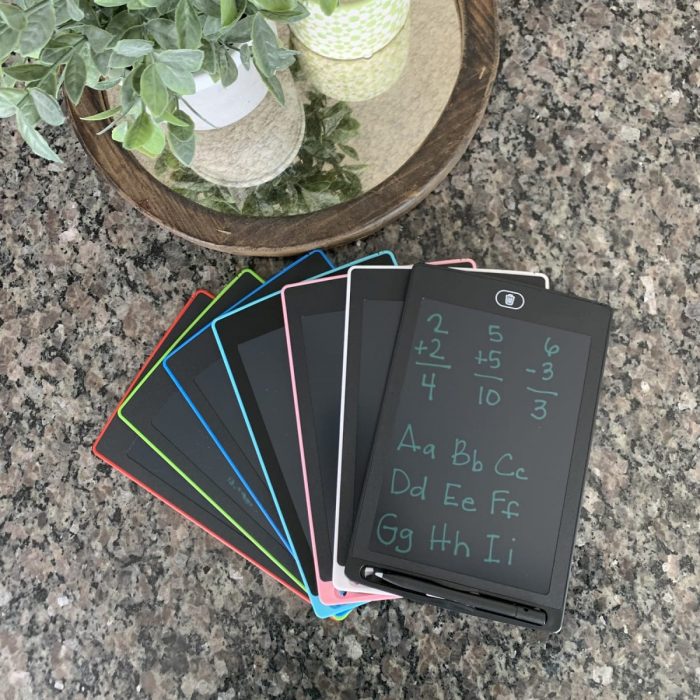 2 5 6
+2 +5 -3
4 10 3
Aa Bb Cc
Dd Ee Ff
Gg Hh Ii